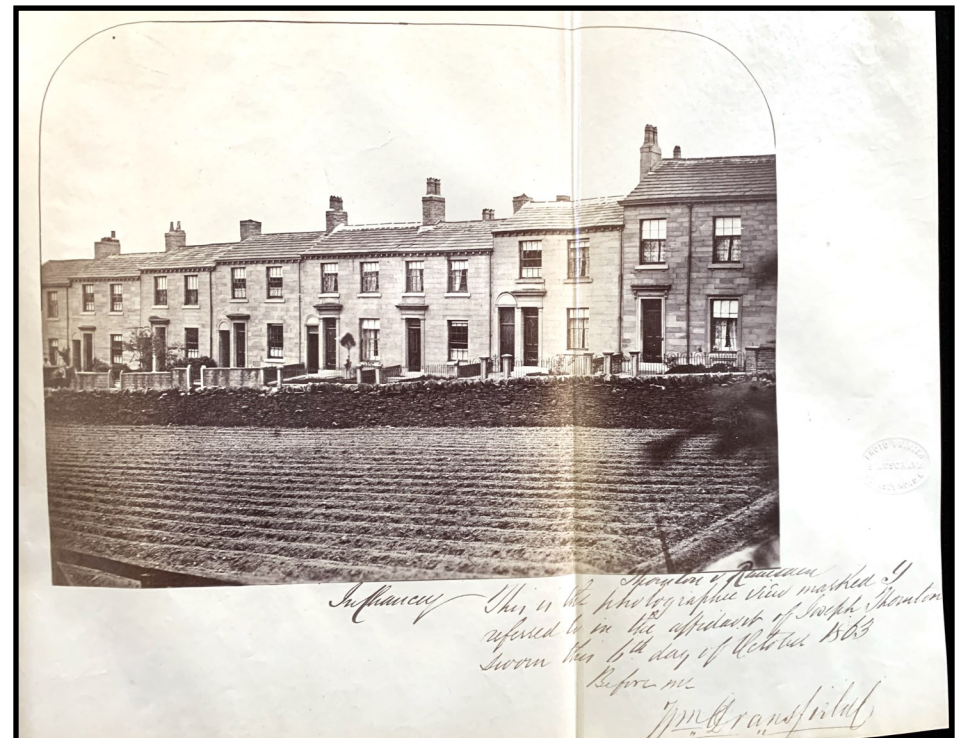 In Chancery
Thornton v Ramsden
This is the photographic view marked Y
referred to in the affidavit of Joseph Thornton
sworn this 6th day of October 1863
Before me
Wm Dransfield